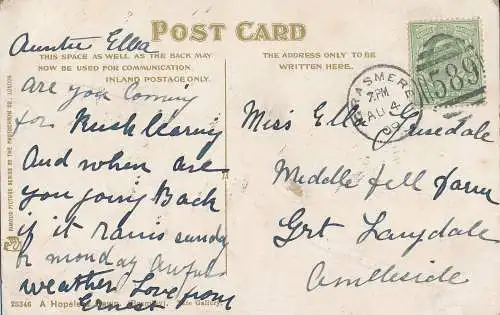 POST CARD
THIS SPACE AS WELL AS THE BACK MAY
NOW BE USED FOR COMMUNICATION
INLAND POSTAGE ONLY.
THE ADDRESS ONLY TO BE
WRITTEN HERE.
Auntie Ella
are you Coming
for Rushbearing
And when are
you going Back
if it rains sunday
or monday awful
weather Love from
Ernest
GRASMERE
7 PM
AU 4
09
589
Miss Ella
Middle fell farm
Grt Langdale
Ambleside
25346 A Hopeless Dawn. Tate Gallery.